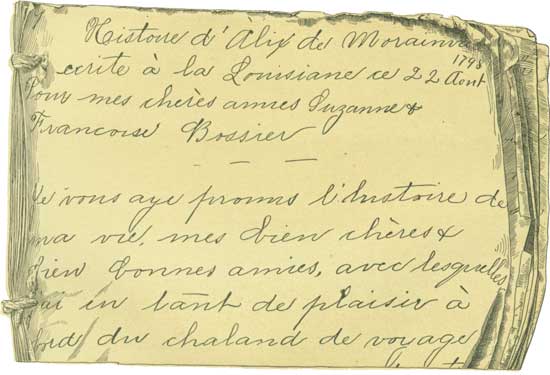 Histoire d'Alix de Morainvi
écrite à la Louisiane ce 22 Août 1795
Pour mes chères amies Suzanne &
Francoise Bossier
Je vous aye promis l'histoire de
ma vie, mes bien chères &
bien bonnes amies, avec lesquelles
j'ai eu tant de plaisir à
bord du chaland de voyage